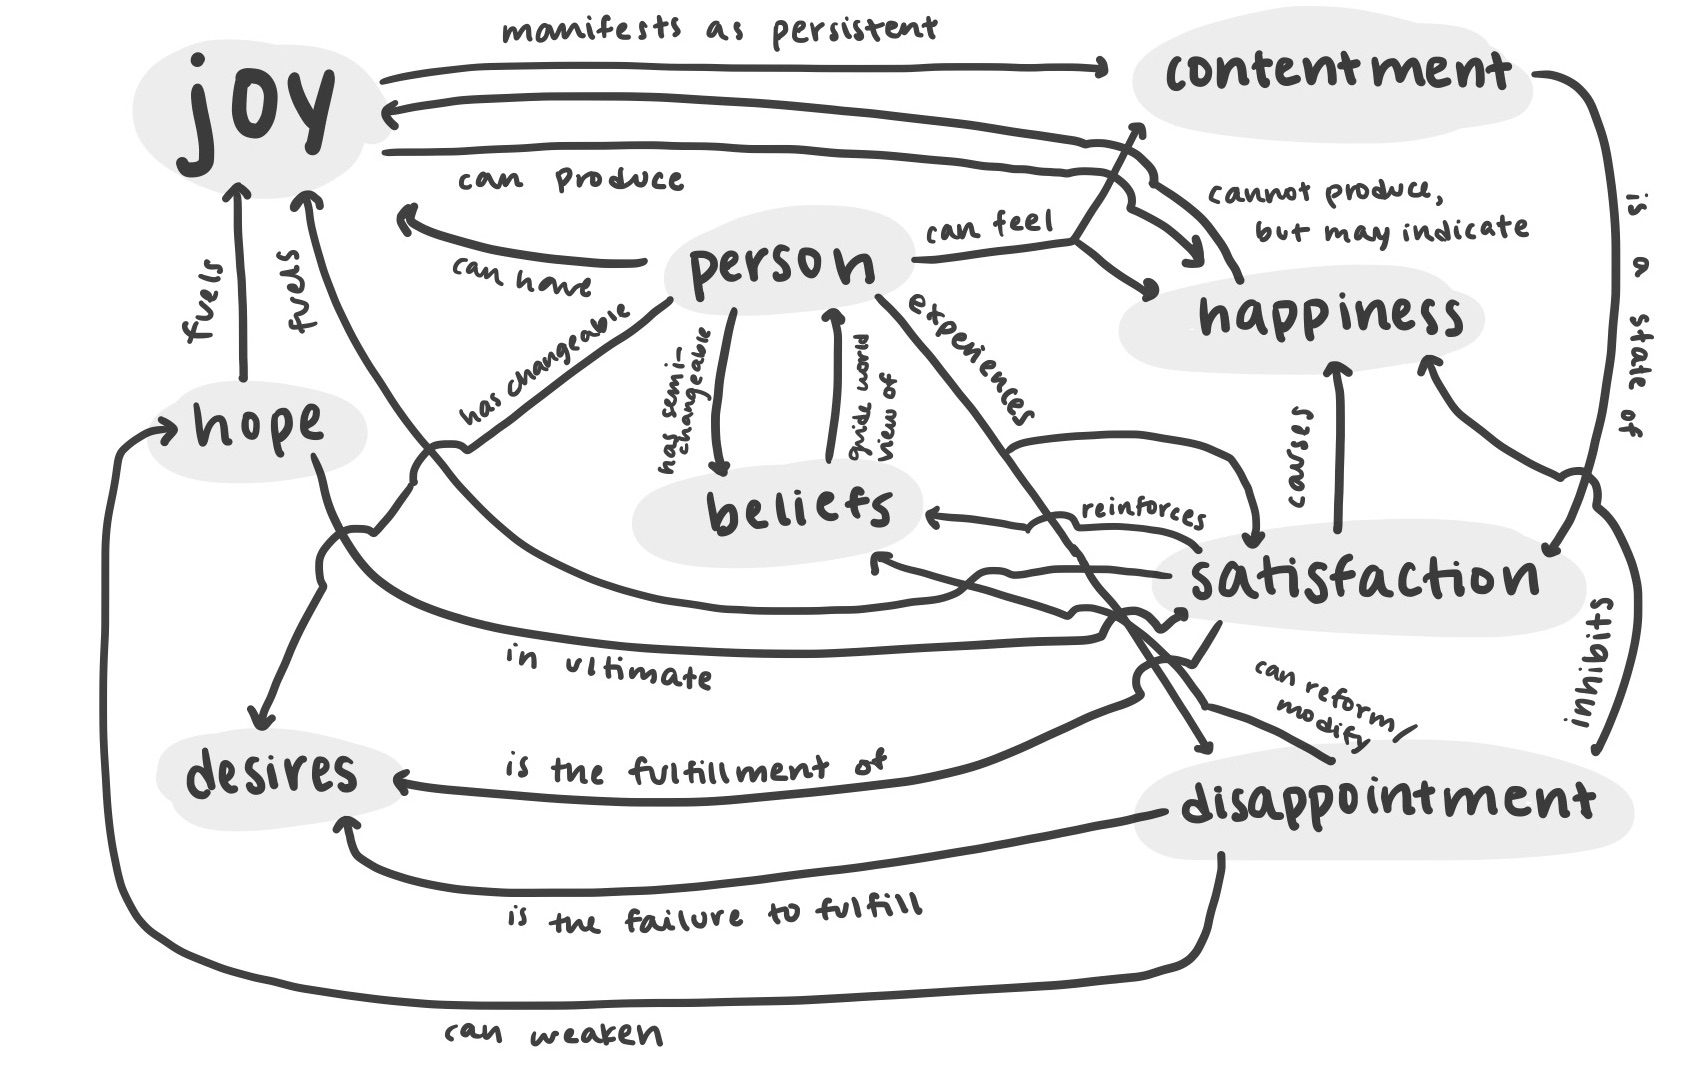 manifests as persistent
joy
contentment
can produce
cannot produce,
but may indicate
is a state of
can feel
person
can have
fuels
fuels
has changeable
has semi-
changeable
guide world
view of
experiences
happiness
hope
causes
beliefs
reinforces
satisfaction
inhibits
in ultimate
can reform/
modify
desires
is the fulfillment of
disappointment
is the failure to fulfill
can weaken